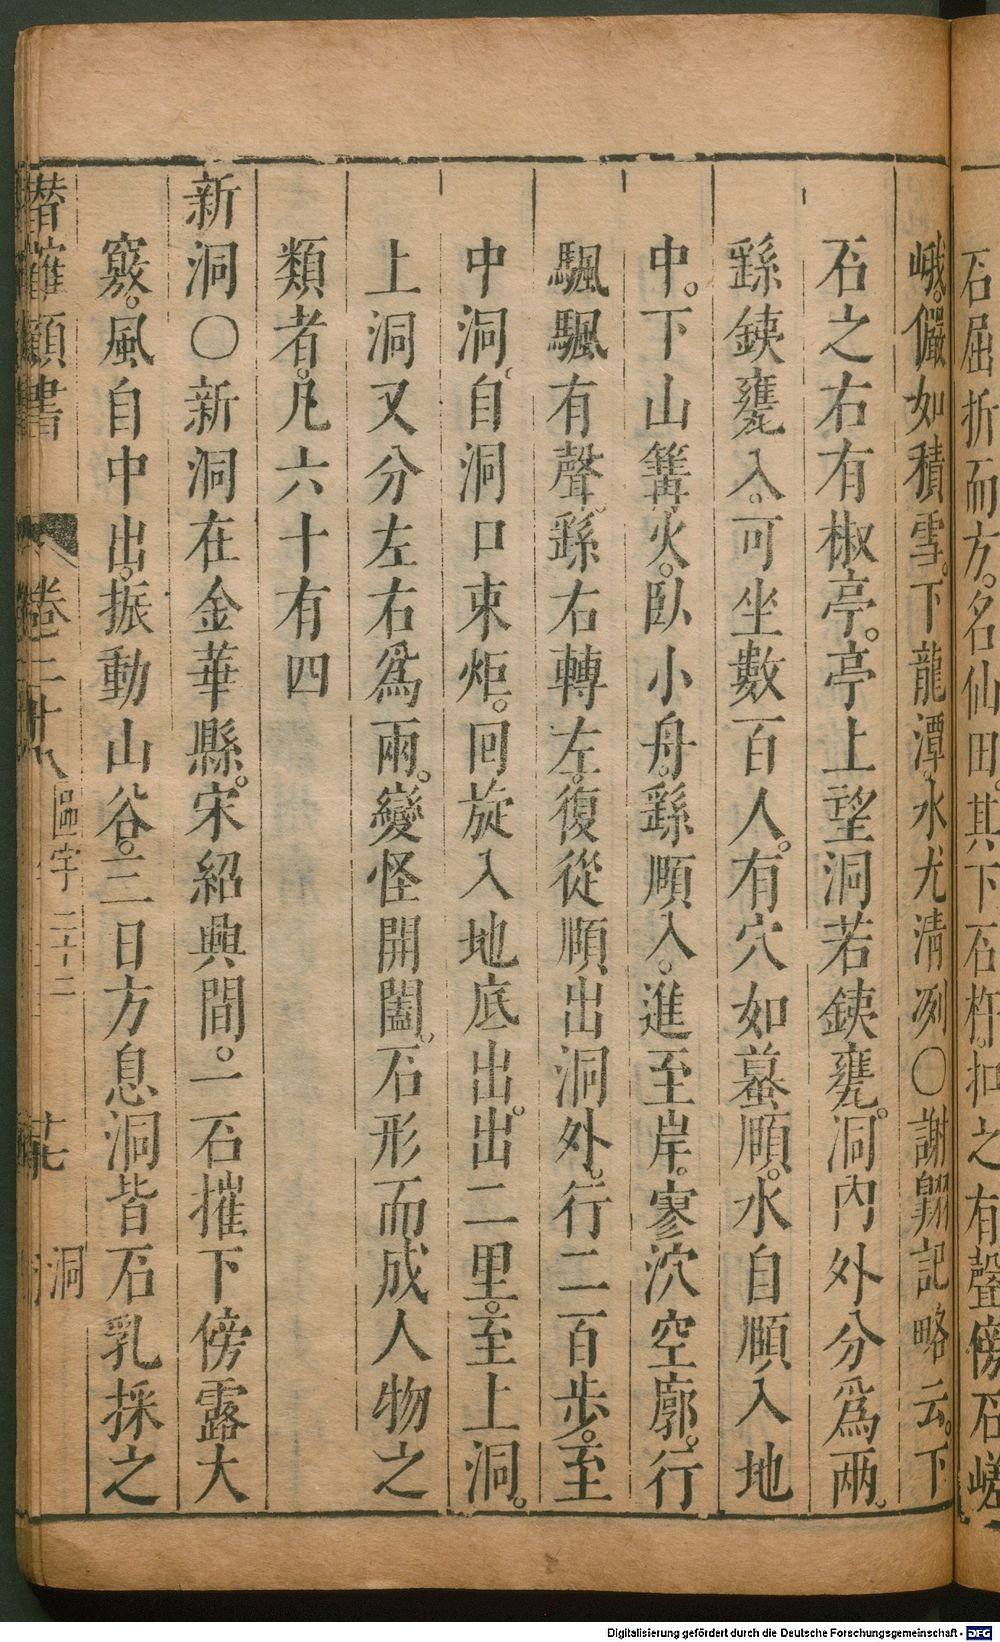 石屈折而方。名仙田。其下石杵。扣之有聲。傍石嵯
峨。儼如積雪。下龍潭。水尤清冽○謝翱記略云。下
石之右有椒亭。亭上望洞若鐵甕。洞內外分爲兩。
繇鐵甕入。可坐數百人。有穴如蟇頤。水自頤入地
中。下山篝火。臥小舟。繇頤入。進至岸。寥泬空廓。行
颿颿有聲。繇右轉左。復從頤出洞外。行二百步。至
中洞。自洞口束炬。回旋入地底出。出二里。至上洞。
上洞又分左右爲兩。變怪開闔。石形而成人物之
類者。凡六十有四
新洞○新洞在金華縣。宋紹興間。一石摧下傍露大
竅。風自中出。振動山谷。三日方息洞皆石乳採之
潛確類書 卷二十八 區宇二十二 十七 洞
Digitalisierung gefördert durch die Deutsche Forschungsgemeinschaft - DFG